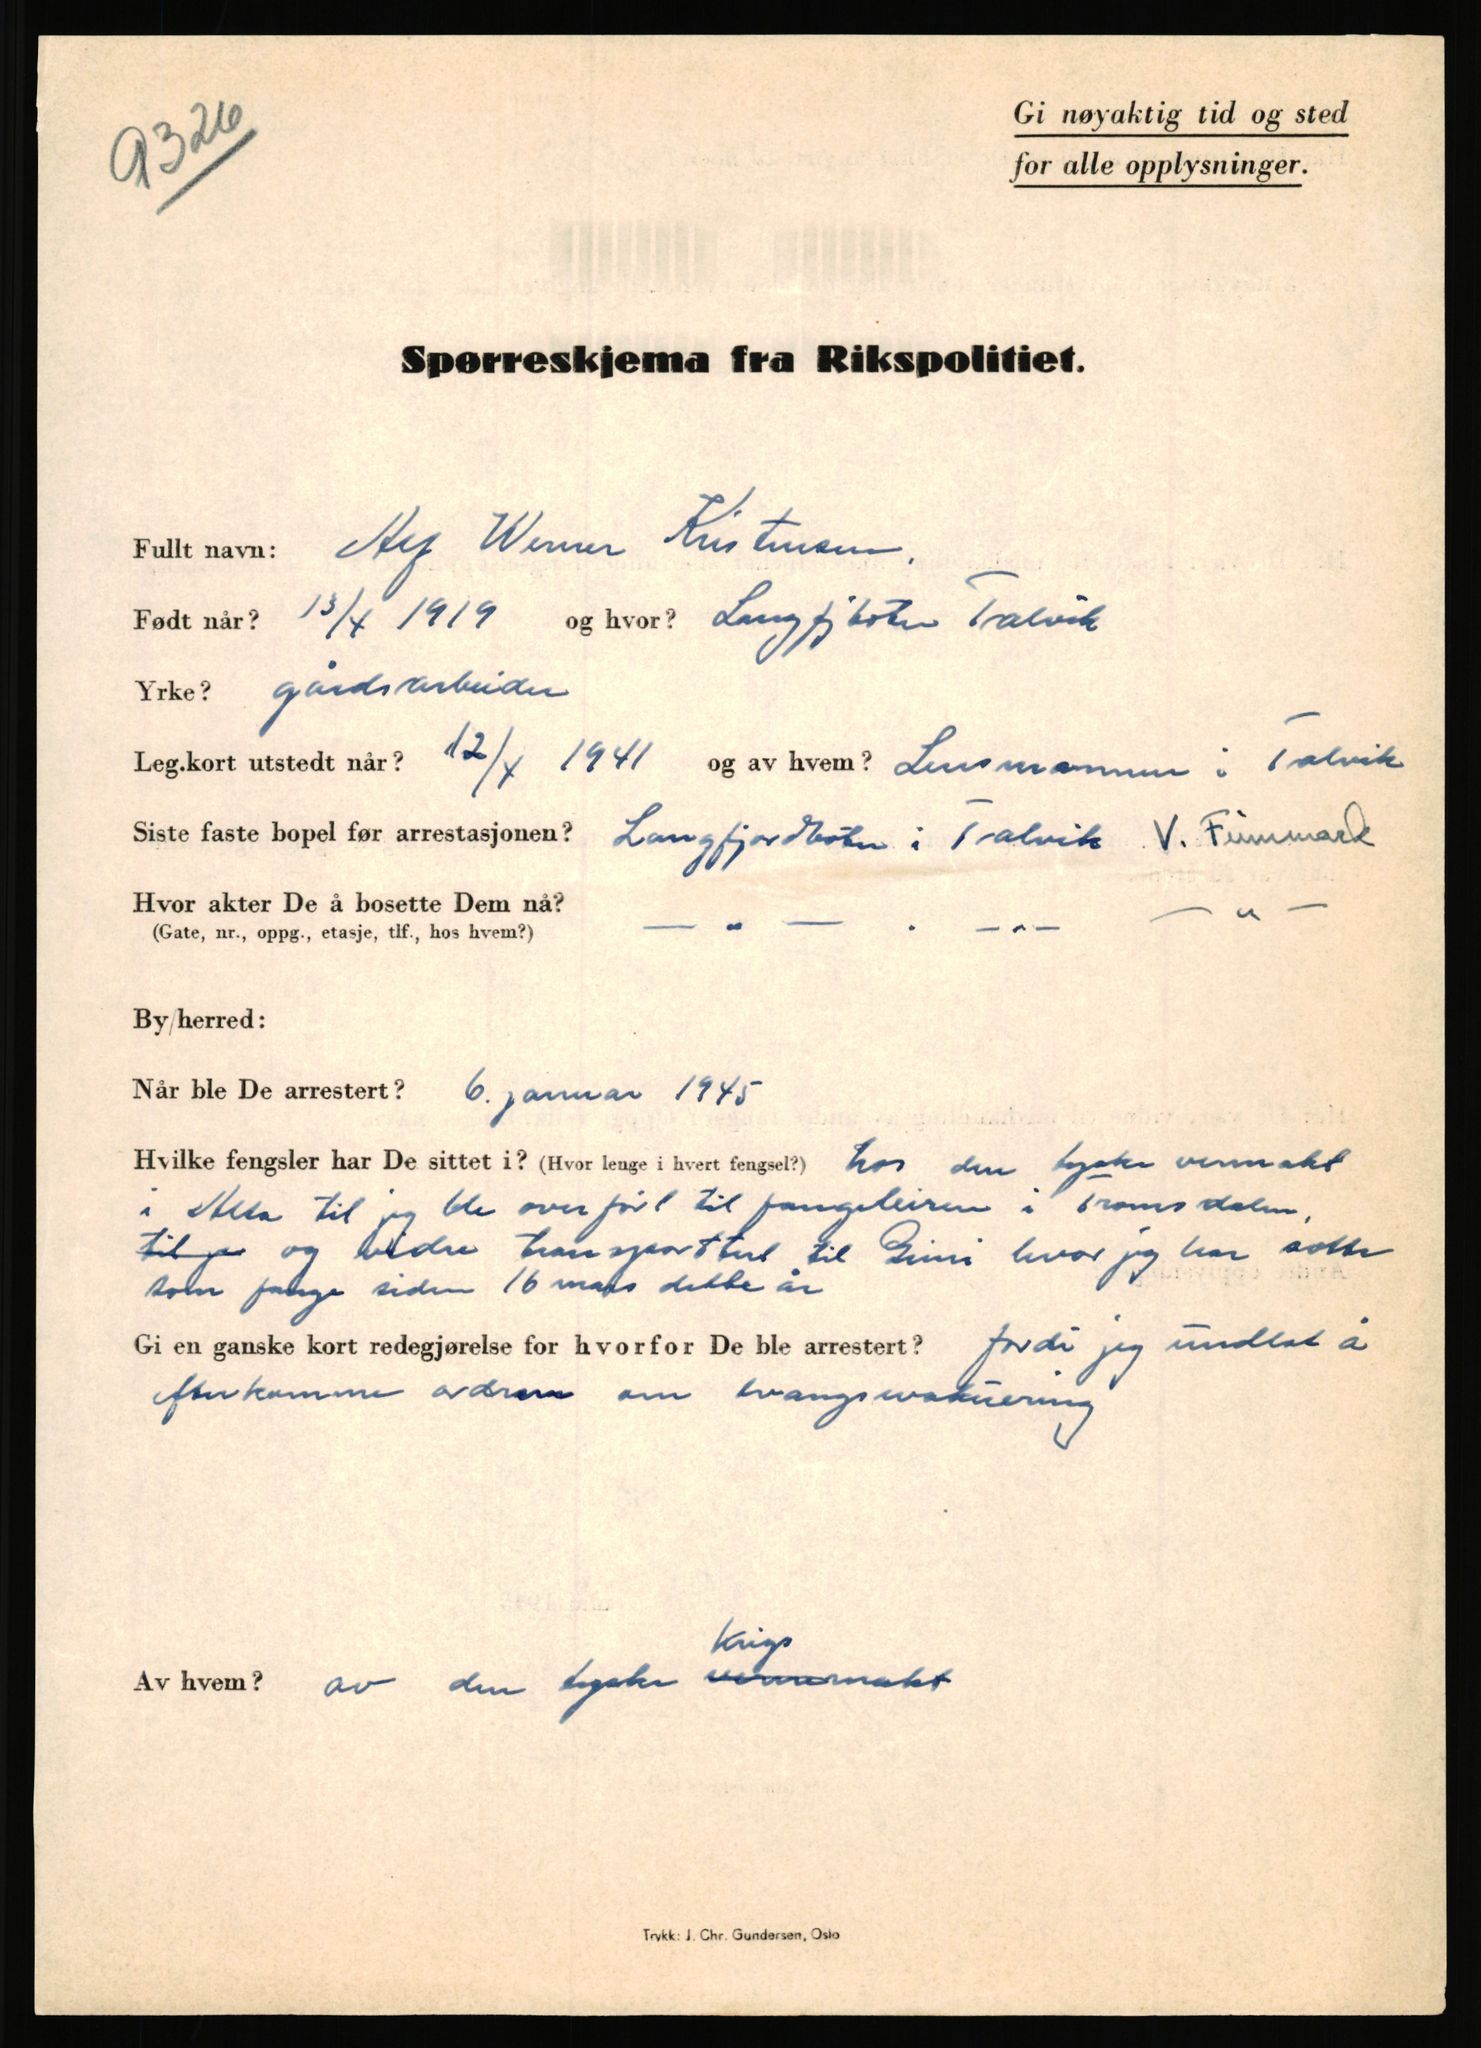 9326
Gi nøyaktig tid og sted
for alle opplysninger.
Spørreskjema fra Rikspolitiet.
Fullt navn: Alf Werner Kristensen.
Født når? 13/X 1919 og hvor? Langfjboten Talvik
Yrke? gårdsarbeider
Leg.kort utstedt når? 12/X 1941 og av hvem? Lensmannen i Talvik
Siste faste bopel før arrestasjonen? Langfjordboten i Talvik V. Finnmark
Hvor akter De å bosette Dem nå? — " — . — " — — " —
(Gate, nr., oppg., etasje, tlf., hos hvem?)
By/herred:
Når ble De arrestert? 6. januar 1945
Hvilke fengsler har De sittet i? (Hvor lenge i hvert fengsel?) hos den tyske vermakt
i Alta til jeg ble overført til fangeleiren i Tromsdalen,
til je og vidre transportert til Grini hvor jeg har sotte
som fange siden 16 mars dette år
Gi en ganske kort redegjørelse for hvorfor De ble arrestert? fordi jeg undlot å
efterkomme ordren om tvangsevakuering
Krigs
Av hvem? av den tyske vermakt
Trykk: J. Chr. Gundersen, Oslo